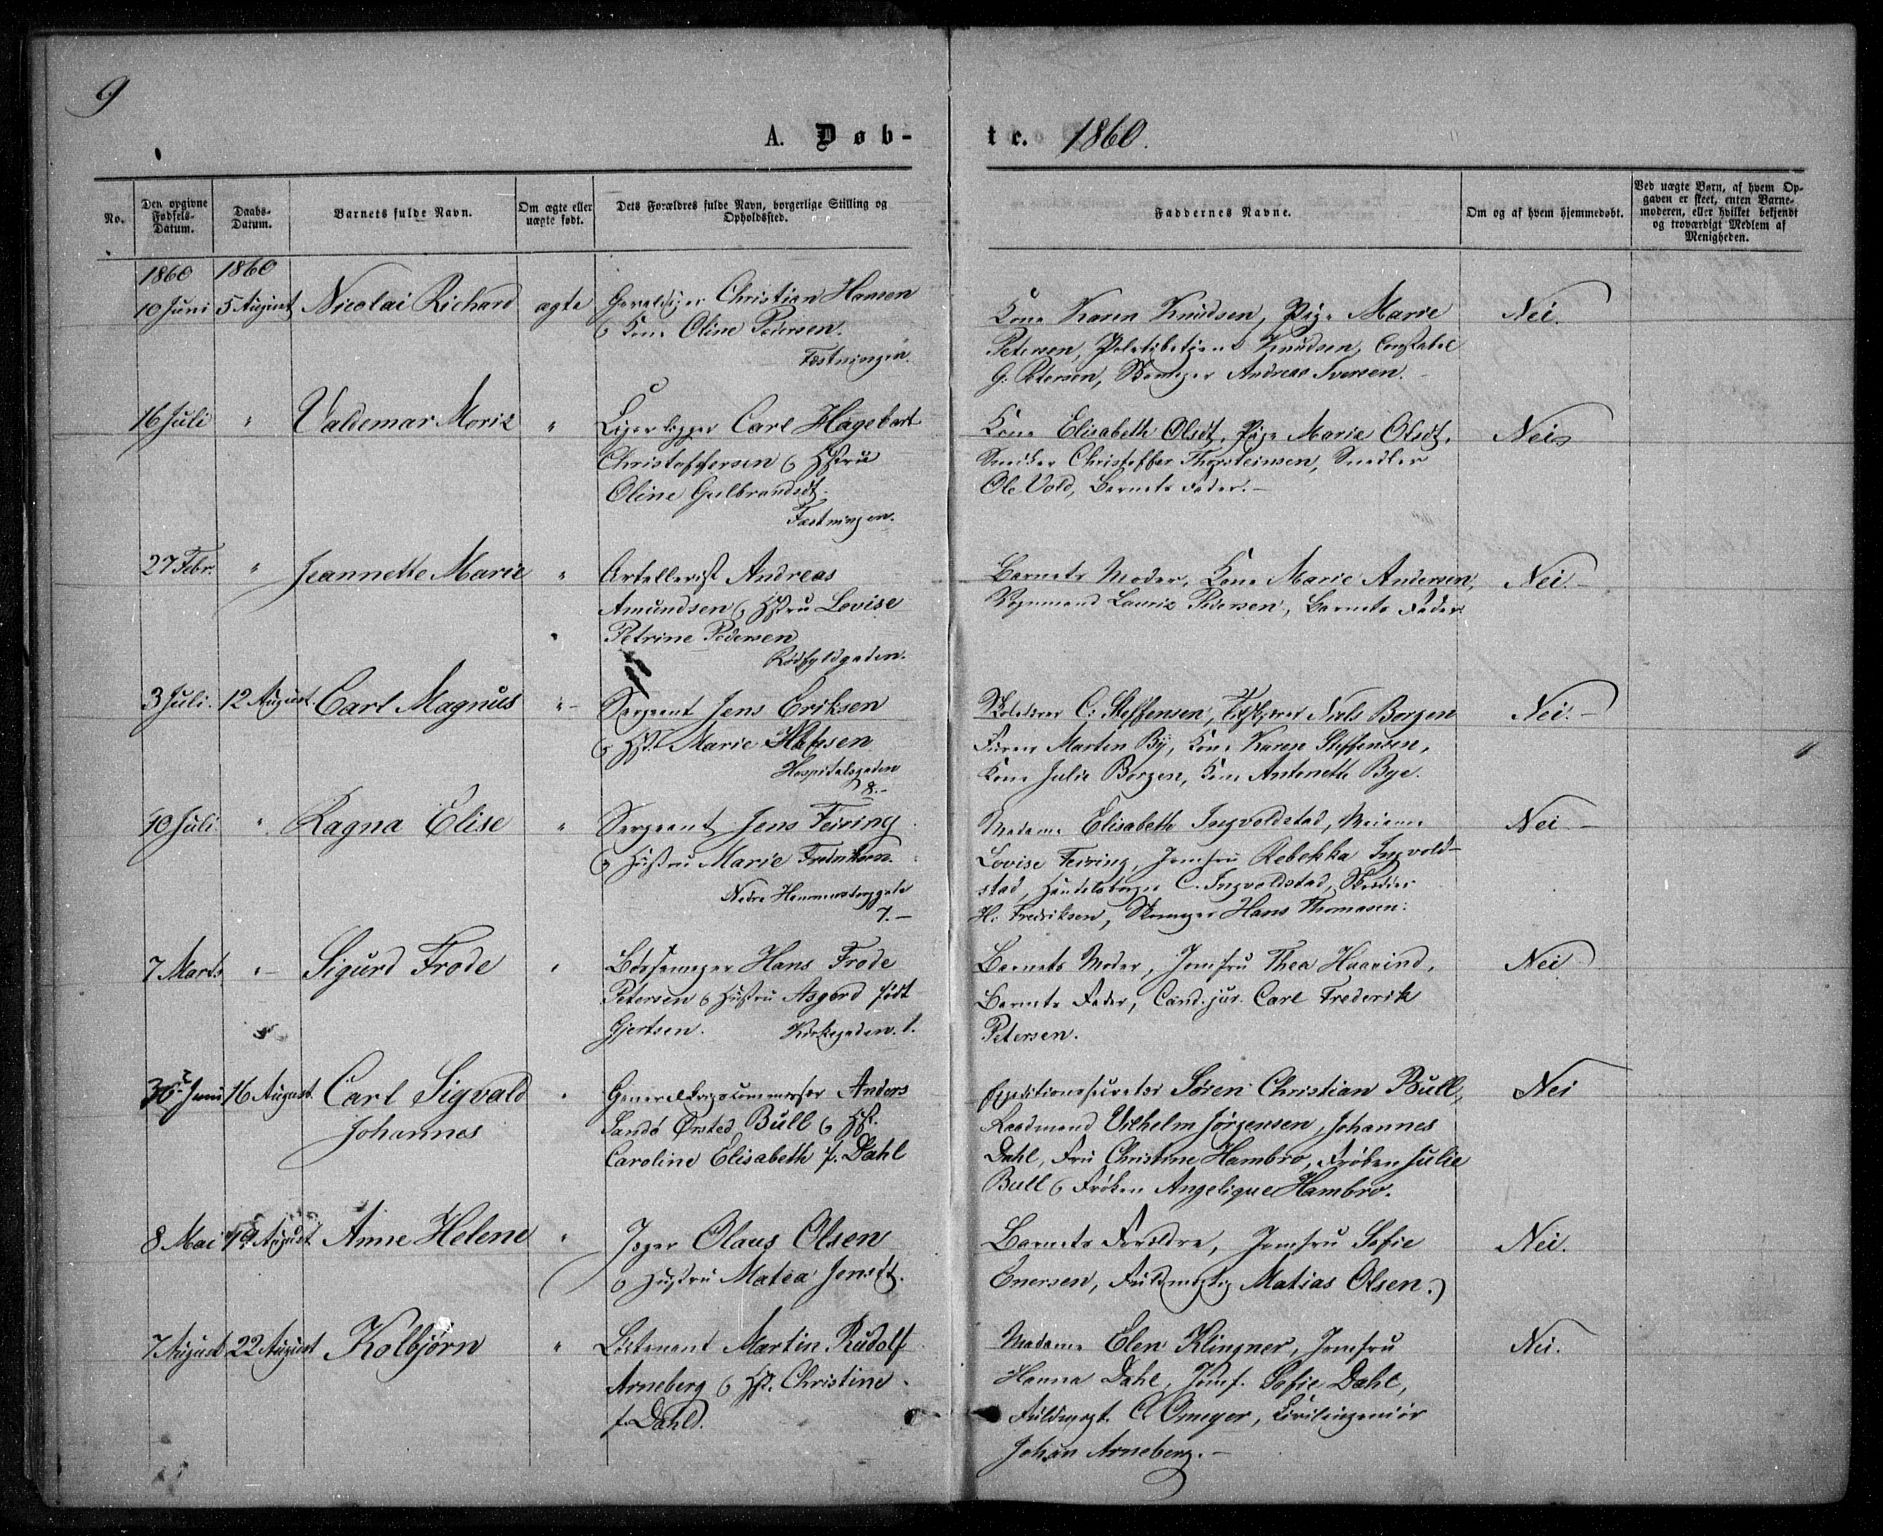 9
A. Døb-
te. 1860.
No.
Den opgivne Fødsels-Datum.
Daabs-Datum.
Barnets fulde Navn.
Om ægte eller uægte født.
Dets Forældres fulde Navn, borgerlige Stilling og Opholdssted.
Faddernes Navne.
Om og af hvem hjemmedøbt.
Ved uægte Børn, af hvem Opgaven er skeet, enten Barnemoderen, eller hvilket bekjendt og troværdigt Medlem af Menigheden.
1860 1860
10 Juni 5 August Nicolai Richard ægte Christian Hansen
& Kone Oline Pedersen.
Fæstningen
Kone Karen Knudsen, Pige Marie
Petersen, Politibetjent Knudsen, Constabel
G. Petersen, Skomager Andreas Iversen.
Nei.
16 Juli " Valdemar Moriz " Carl Hagebart
Christoffersen & Hstru
Oline Gulbrandsdt.
Fæstningen.
Kone Elisabeth Olsdt, Pige Marie Olsdt,
Snedker Christoffer Thorsteinsen, Snedker
Ole Vold, Barnets Fader.-
Nei
27 Febr. " Jeannette Marie " Artellerist Andreas
Amundsen & Hstru Lovise
" Petrine Pedersen
Rødfyldgaden.
Barnets Moder, Kone Marie Andersen,
Vognmand Lauriz Pedersen, Barnets Fader
Nei.-
3 Juli. 12 August. Carl Magnus "- Sergeant Jens Eriksen
& Hst. Marie
Hospitalsgaden
8.-
C. Steffensen, Niels Borgen
Martin By, Kone Karen Steffensen,
Kone Julie Borgen, Kone Antonette Bye.
Nei.-
10 Juli. " Ragna Elise " Sergeant Jens Feiring
& Hustru Marie Fredriksen.
Nedre Hammersborggade
7.-
Madame Elisabeth Ingvoldstad, Madame
Lovise Feiring, Jomfru Rebekka Ingvold-
stad, Handelsborger C. Ingvoldstad,
H. Fredriksen, Skomager Hans Thomasen.
Nei-
7 Marts "- Sigurd Frode " Bøssemager Hans Frode
Petersen & Hustru Asgerd født
Gjertsen. Kirkegaden. 1.
Barnets Moder, Jomfru Thea Haavind,
Barnets Fader, Cand. jur. Carl Frederik
Petersen.
Nei
30 Juni 16 August. Carl Sigvald " Generalkrigscommissær Anders
Johannes Sandø Ørsted Bull & Hst.
Caroline Elisabeth f. Dahl
Søren Christian Bull,
Raadmand Vilhelm Jørgensen, Johannes
Dahl, Fru Christine Hambro, Frøken Julie
Bull & Frøken Angelique Hambro.
Nei
8 Mai 19 August Anne Helene " Jæger Olaus Olsen
& Hustru Matea Jensdt.
Barnets Forældre, Jomfru Sofie
Enersen, Fuldmægtig Matias Olsen.
Nei.
7 August 22 August Kolbjørn " Lieutenant Martin Rudolf
Arneberg & Hst. Christine
f. Dahl.
Madame Elen Klingner, Jomfru
Hanna Dahl, Jomf. Sofie Dahl,
Fuldmægt. C Omeyer, Civilingeniør
Johan Arneberg.-
Nei.